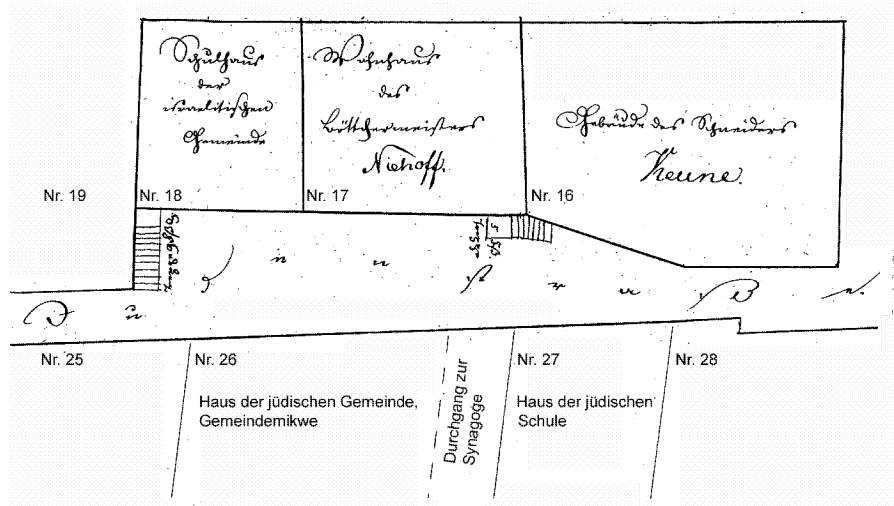 Schulhaus
der
israelitischen
Gemeinde
Wohnhaus
des
Böttchermeisters
Niehoff.
Gebäude des Schneiders
Keune.
Nr. 19
Nr. 18
Nr. 17
Nr. 16
Judenstraße.
Nr. 25
Nr. 26
Nr. 27
Nr. 28
Haus der jüdischen Gemeinde,
Gemeindemikwe
Durchgang zur
Synagoge
Haus der jüdischen
Schule